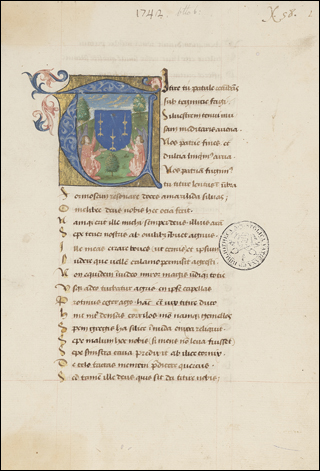 1742
Titire tu patule recubans
sub tegmine fagi
Siluestrem tenui mu
sam meditaris auena
Nos patrie fines et
dulcia linquimus arua
Nos patriam fugimus
tu titire lentus i umbra
Formosam resonare doces amarilida siluas
O melibee deus nobis hec ocia fecit
Namque erit ille michi semper deus illius aram
Sepe tener nostris ab ouilibus imbuet agnus
Ille meas errare boues ut cernis et ipsum
Ludere que uellem calamo permisit agresti
Non equidem inuideo miror magis undique totis
Usque adeo turbatur agris en ipse capellas
Protinus eger ago hanc et uix titire duco
Hic inter densas corilos modo namque gemellos
Spem gregis ha silice in nuda reliquit
Sepe malum hoc nobis si mens non leua fuisset
Sepe sinistra caua predixit ab ilice cornix
De celo tactas memini predicere quercus
Sed tamen ille deus qui sit da titire nobis